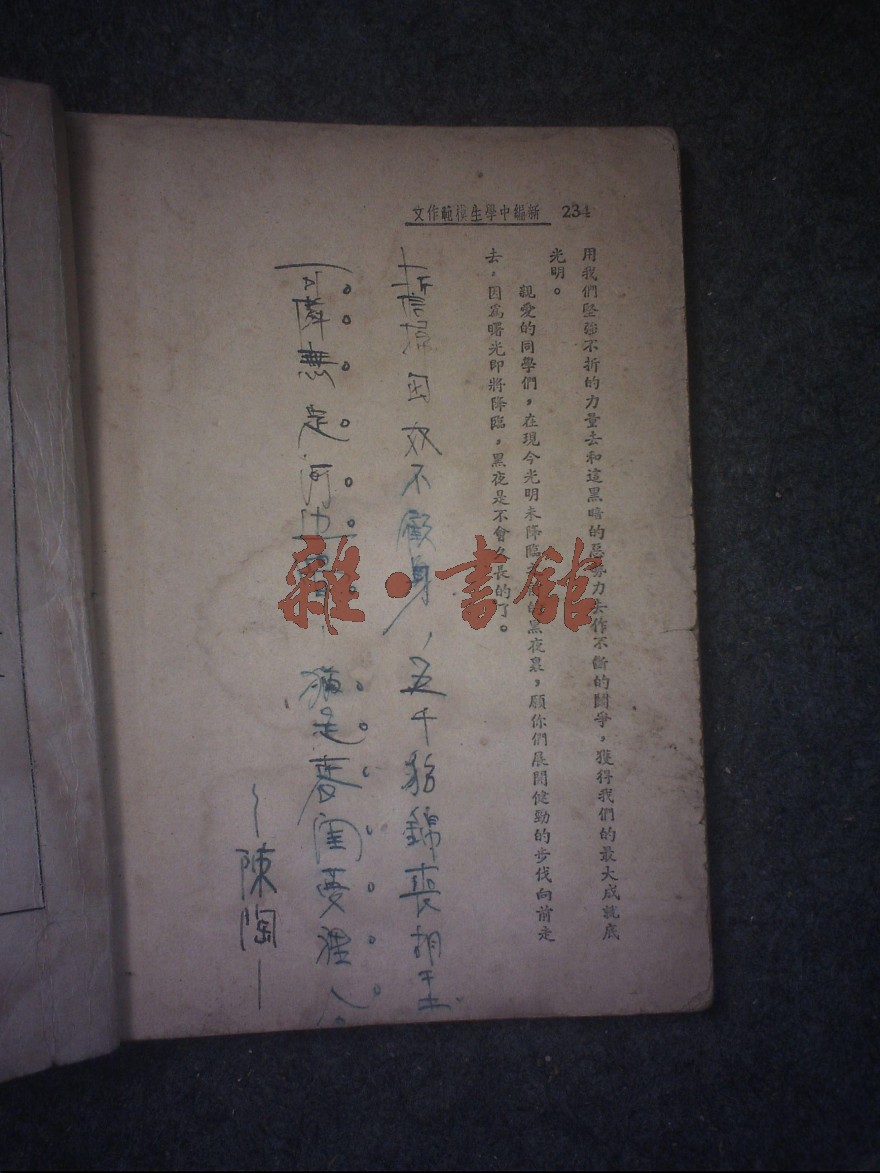 新編中學生模範作文 234
用我們堅強不折的力量去和這黑暗的惡勢力去作不斷的鬪爭，獲得我們的最大成就底
光明。
親愛的同學們，在現今光明未降臨之前的黑夜裏，願你們展開健勁的步伐向前走
去，因爲曙光即將降臨，黑夜是不會久長的了。
誓掃匈奴不顧身，五千貂錦喪胡塵
可憐無定河边骨，猶是春閨夢裡人
陳陶
雜·書館